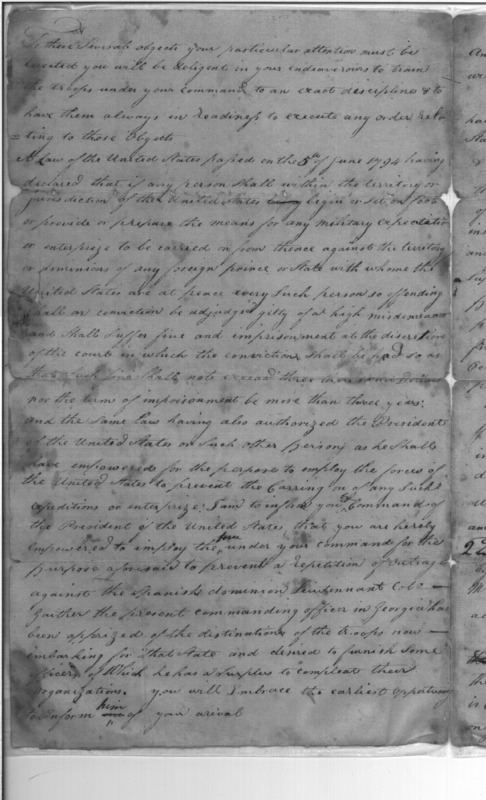 To these Severall objects your particular attention must be
directed you will be deligent in your endeavours to train
the troops under your command to an exact descipline & to
have them always in readiness to execute any order rela
=ting to those Objects
A Law of the United States passed on the 5th of June 1794 having
declared that if any person shall within the territory or
jurisdiction of the United States begin or Set on foot
or provide or prepare the means for any military expedition
or enterprize to be carried on from thence against the territory
or dominions of any foreign prince or State with whome the
United States are at peace every Such person so offending
Shall on conviction be adjudged gilty of a high misdemeanor
and Shall Suffer fine and emprisonment at the discretion
of the court in which the conviction Shall be had so as
that Such fine Shall note exceed three
nor the term of imprisonment be more than three years:
and the Same law having also authorized the President
of the United States or Such other person as he Shall
have empowered for the purpose to employ the forces of
the United States to prevent the Carring on of any Such
expeditions or enterprize: I am to inform you by Command of
the President of the United States that you are hereby
Empowered to imploy the force under your command for the
purpose aforesaid to prevent a repetition of outrage
against the Spanish dominion Lieutennant Colo —
Gaither the present commanding officer in Georgia has
been apprized of the destination of the troops now —
imbarking for that State and desired to furnish Some
officers of Which he has a Surplus to compleat their
organizations. you will Embrace the earliest oppertunity
to inform him of your arival